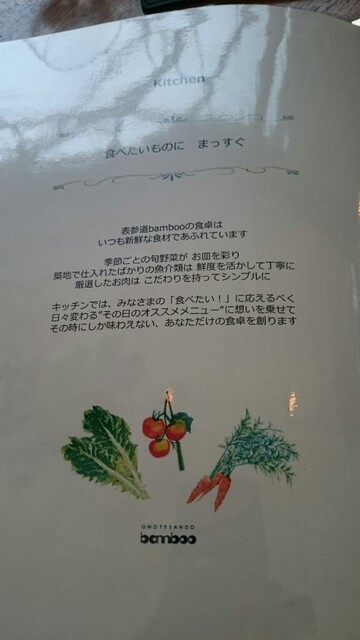 Kitchen
食べたいものに まっすぐ
表参道bambooの食卓は
いつも新鮮な食材であふれています
季節ごとの旬野菜が お皿を彩り
築地で仕入れたばかりの魚介類は 鮮度を活かして丁寧に
厳選したお肉は こだわりを持ってシンプルに
キッチンでは、みなさまの「食べたい！」に応えるべく
日々変わる"その日のオススメメニュー"に想いを乗せて
その時にしか味わえない、あなただけの食卓を創ります
OMOTESANDO
bamboo